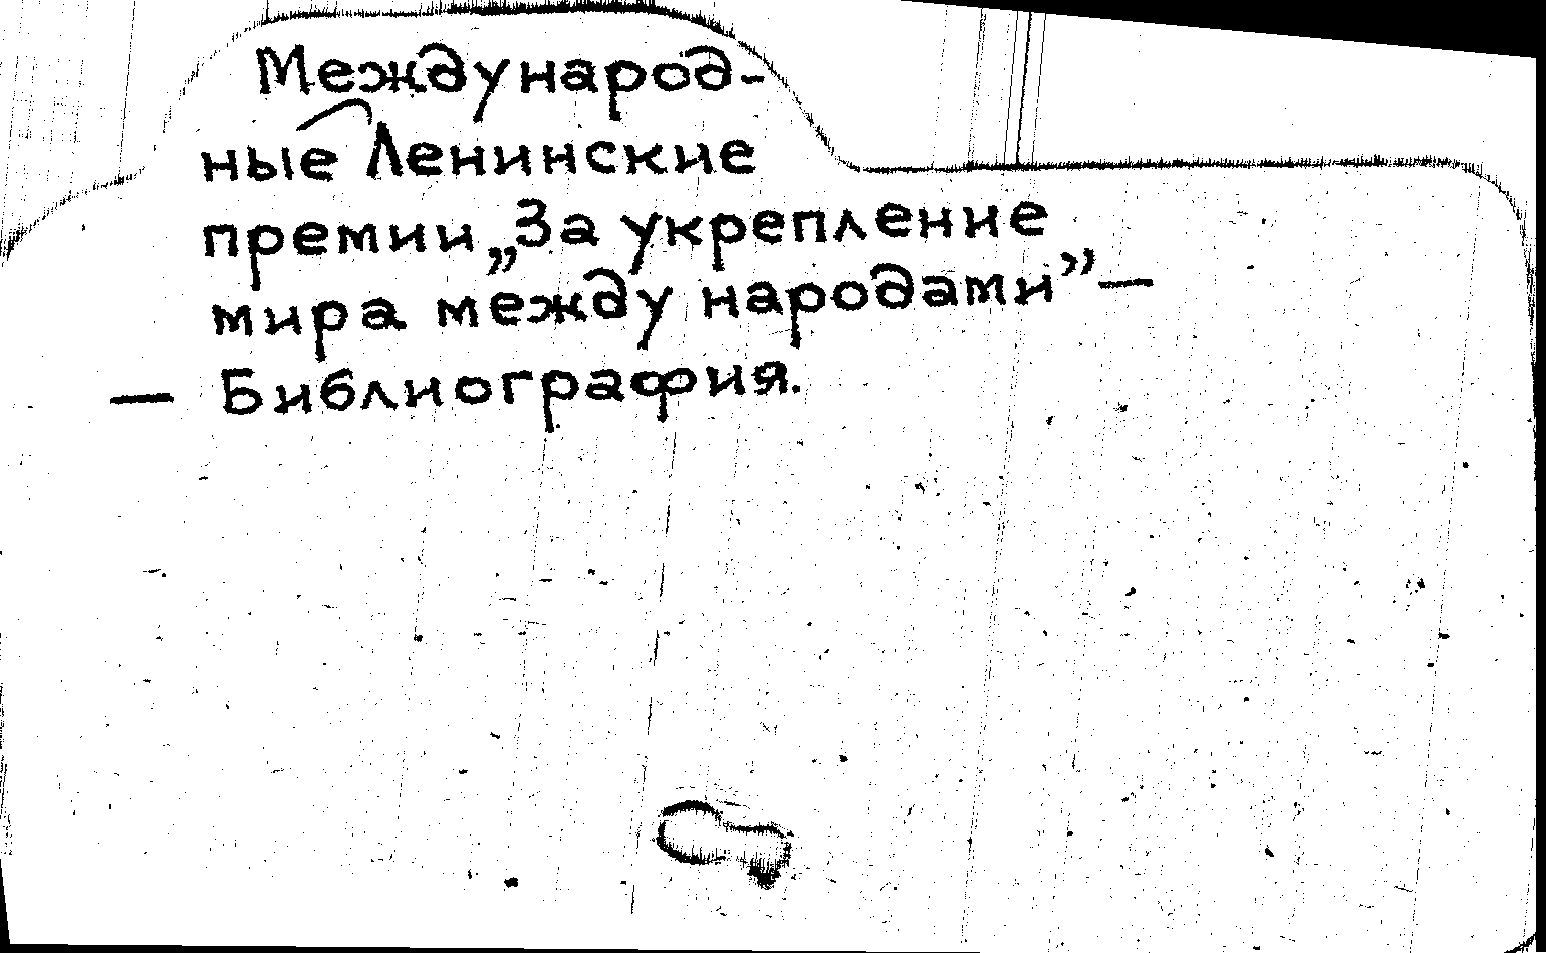 Международ-
ные Ленинские
премии „За укрепление
мира между народами”—
— Библиография.